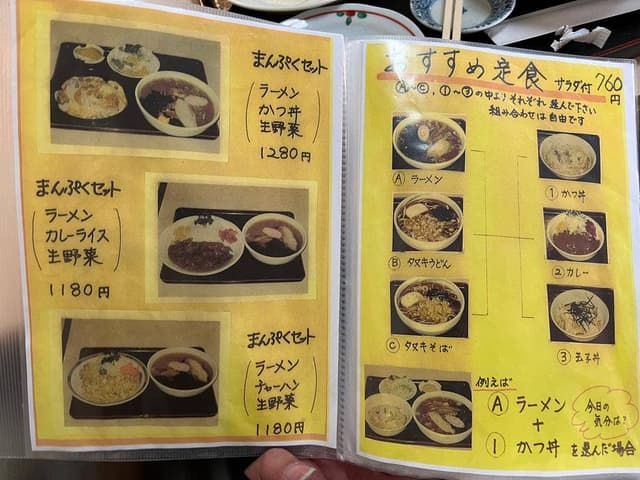 まんぷくセット
ラーメン
かつ丼
生野菜
1280円
まんぷくセット
ラーメン
カレーライス
生野菜
1180円
まんぷくセット
ラーメン
チャーハン
生野菜
1180円
おすすめ定食 サラダ付 760円
Ⓐ〜Ⓒ、①〜③の中よりそれぞれ選んで下さい
組み合わせは自由です
Ⓐ ラーメン
Ⓑ タヌキうどん
Ⓒ タヌキそば
① かつ丼
② カレー
③ 玉子丼
例えば
Ⓐ ラーメン
+
① かつ丼 を選んだ場合
今日の
気分は?